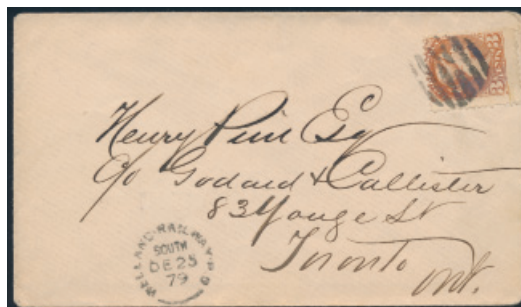 Henry Pim Esq
c/o Godard & Callister
83 Yonge St
Toronto
Ont.
WELLAND·RAILWAY·P·O
SOUTH
DE 25
79